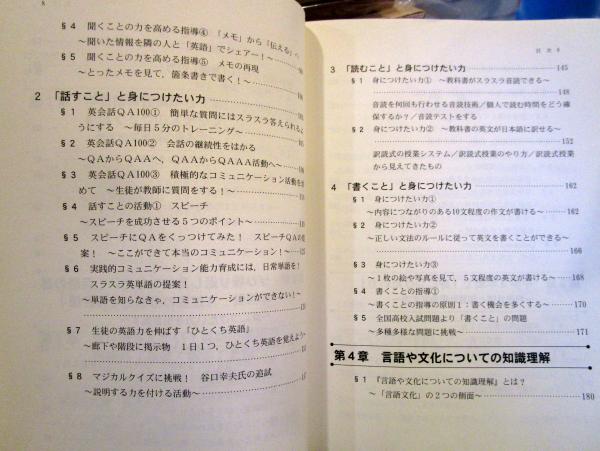 8
§4 聞くことの力を高める指導④ 「メモ」から「伝える」へ
～聞いた情報を隣の人と「英語」でシェアー！～
§5 聞くことの力を高める指導⑤ メモの再現
～とったメモを見て，箇条書きで書く！～
2 「話すこと」と身につけたい力
§1 英会話QA100① 簡単な質問にはスラスラ答えられるよ
うにする ～毎日5分のトレーニング～
§2 英会話QA100② 会話の継続性をはかる
～QAからQAAへ，QAAからQAAA活動へ～
§3 英会話QA100③ 積極的なコミュニケーション活動を
めて ～生徒が教師に質問をする！～
§4 話すことの活動① スピーチ
～スピーチを成功させる5つのポイント～
§5 スピーチにQAをくっつけてみた！ スピーチQAの
案！ ～ここができて本当のコミュニケーション！～
§6 実践的コミュニケーション能力育成には，日常単語を！
スラスラ英単語の提案！
～単語を知らなきゃ，コミュニケーションができない！～
§7 生徒の英語力を伸ばす「ひとくち英語」
～廊下や階段に掲示物 1日1つ，ひとくち英語を覚えよう～
§8 マジカルクイズに挑戦！ 谷口幸夫氏の追試
～説明する力を付ける活動～
目 次 9
3 「読むこと」と身につけたい力 145
§1 身につけたい力① ～教科書がスラスラ音読できる～
148
音読を何回も行わせる音読技術／個人で読む時間をどう確
保するか？／音読テストをする
§2 身につけたい力② ～教科書の英文が日本語に訳せる～
152
訳読式の授業システム／訳読式授業のやり方／訳読式授業
から見えてきたもの
4 「書くこと」と身につけたい力 162
§1 身につけたい力①
～内容につながりのある10文程度の作文が書ける～ 162
§2 身につけたい力②
～正しい文法のルールに従って英文を書くことができる～
166
§3 身につけたい力③
～1枚の絵や写真を見て，5文程度の英文が書ける～ 168
§4 書くことの指導①
～書くことの指導の原則1：書く機会を多くする～ 170
§5 全国高校入試問題より「書くこと」の問題
～多種多様な問題に挑戦～ 171
第4章 言語や文化についての知識理解
§1 『言語や文化についての知識理解』とは？
～「言語文化」の2つの側面～ 180